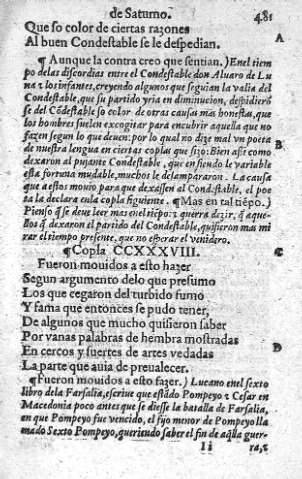 de Saturno. 481
Que so color de ciertas razones
Al buen Condestable se le despedian.
A
¶ Aunque la contra creo que sentian. ) Enel tiem
po delas discordias entre el Condestable don Aluaro de Lu
na ⁊ los infantes, creyendo algunos que seguian la valia del
Condestable, que su partido yria en diminucion, despidierõ
se del Cõdestable so color de otras causas mas honestas, que
los hombres suelen excogitar para encubrir aquella que no
fazen segun lo que deuen: por lo qual no dize mal vn poeta
B
de nuestra lengua en ciertas coplas que fizo: Bien assi como
dexaron al pujante Condestable, que en siendo le variable
esta fortuna mudable, muchos le desampararon. La causa
que a estos mouio para que dexassen al Condestable, el poe
ta la declara enla copla siguiente. ¶ Mas en tal tiẽpo. )
Pienso q̃ se deue leer mas enel tiẽpo: ⁊ querra dezir, q̃ aque
llos q̃ dexaron el partido del Condestable, quisieron mas mi
rar el tiempo presente, que no esperar el venidero.
¶ Copla CCXXXVIII.
C
Fueron mouidos a esto hazer
Segun argumento delo que presumo
Los que cegaron del turbido fumo
Y fama que entonces se pudo tener,
De algunos que mucho quisieron saber
Por vanas palabras de hembra mostradas
En cercos y suertes de artes vedadas
D
La parte que auia de preualecer.
¶ Fueron mouidos a esto fazer. ) Lucano enel sexto
libro dela Farsalia, escriue que estãdo Pompeyo ⁊ Cesar en
Macedonia poco antes que se diesse la batalla de Farsalia,
en que Pompeyo fue vencido, el fijo menor de Pompeyo lla
mado Sexto Pompeyo, queriendo saber el fin de aq̃lla guer-
Ii ra, ⁊